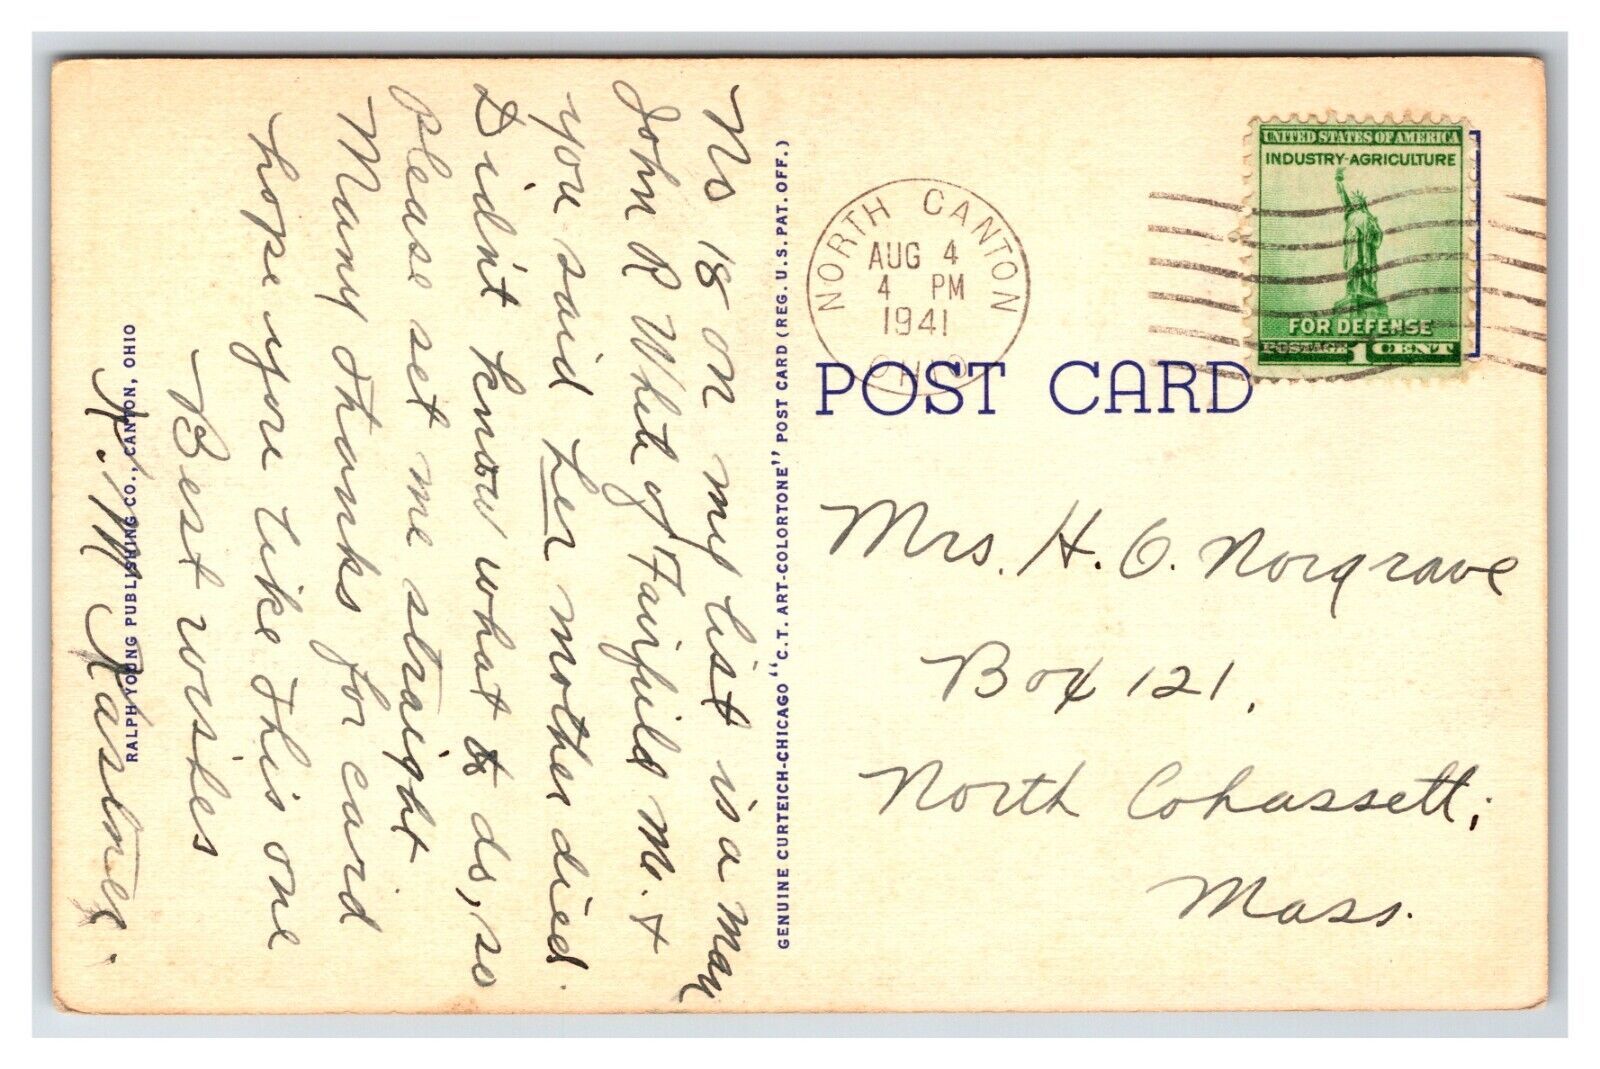 No 18 on my list is a man
John R White of Fairfield Me. &
you said her mother died.
Didn't know what to do, so
please set me straight
Many thanks for card
hope you like this one
Best wishes
H. M. Kastner.
RALPH YOUNG PUBLISHING CO., CANTON, OHIO
GENUINE CURTEICH-CHICAGO "C.T. ART-COLORTONE" POST CARD (REG. U.S. PAT. OFF.)
NORTH CANTON
AUG 4
4 PM
1941
OHIO
UNITED STATES OF AMERICA
INDUSTRY-AGRICULTURE
FOR DEFENSE
POSTAGE 1 CENT
POST CARD
Mrs. H. O. Norgrave
Box 121,
North Cohassett,
Mass.